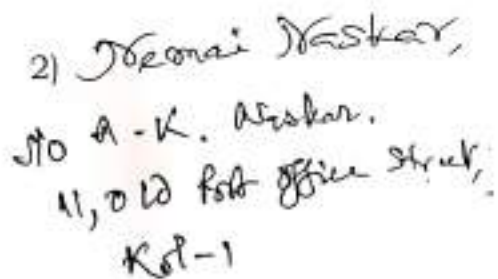 2) Nemai Naskar,
S/O A.K. Naskar.
11, Old Post Office Street,
Kol-1